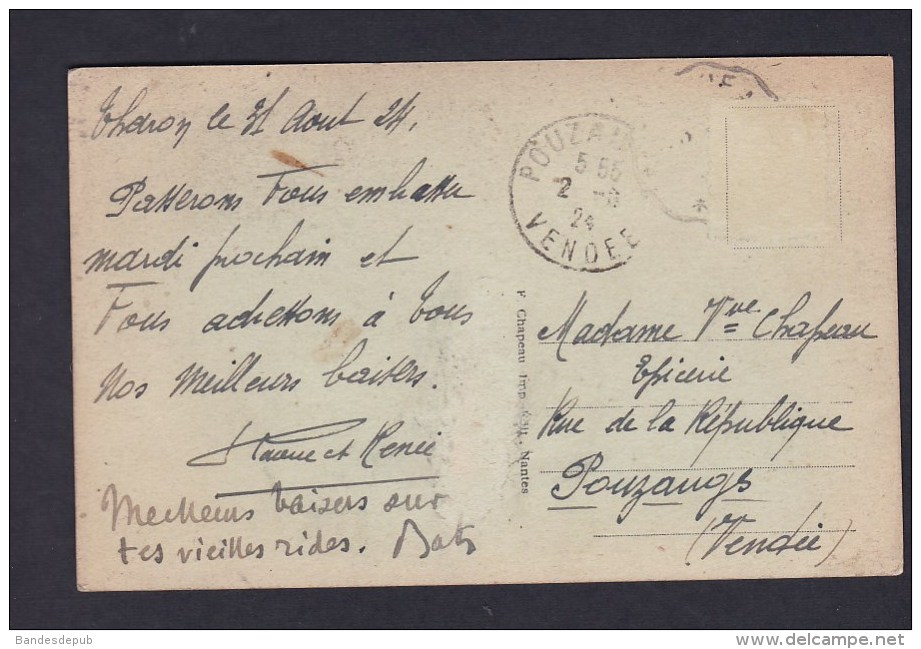 Tharon le 31 Aout 24.
Passerons Vous embrasser
mardi prochain et
Vous adressons à tous
nos meilleurs baisers.
et Renée
Meilleurs baisers sur
tes vieilles rides.
POUZAUGES
5 55
2 -9
24
VENDEE
*
F. Chapeau Imp. Edit. Nantes
Madame Vve Chapeau
Epicerie
Rue de la République
Pouzauges
(Vendée)
Bandesdepub
www.delcampe.net